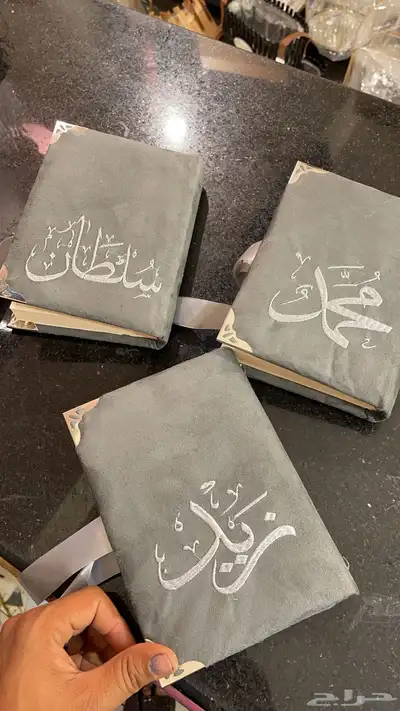 سلطان
محمد
زيد
حراج